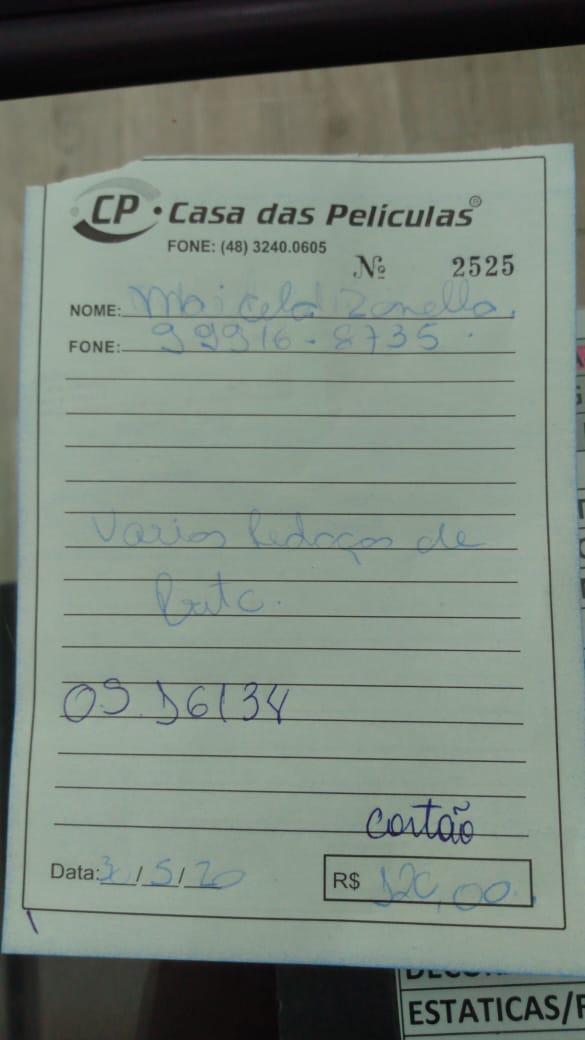 CP • Casa das Películas®
FONE: (48) 3240.0605
Nº 2525
NOME: Zanella
FONE: 99916-8735
Varios Pedaços de
OS. D6134
cartão
Data: / 5 / 20
R$ 120,00
ESTATICAS/